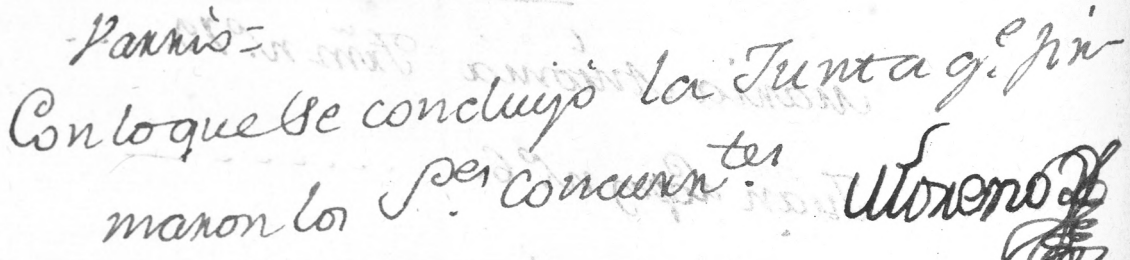 Varrio =
Con lo que se concluyó la Junta q.e fir-
maron los S.res concurr.tes Moreno